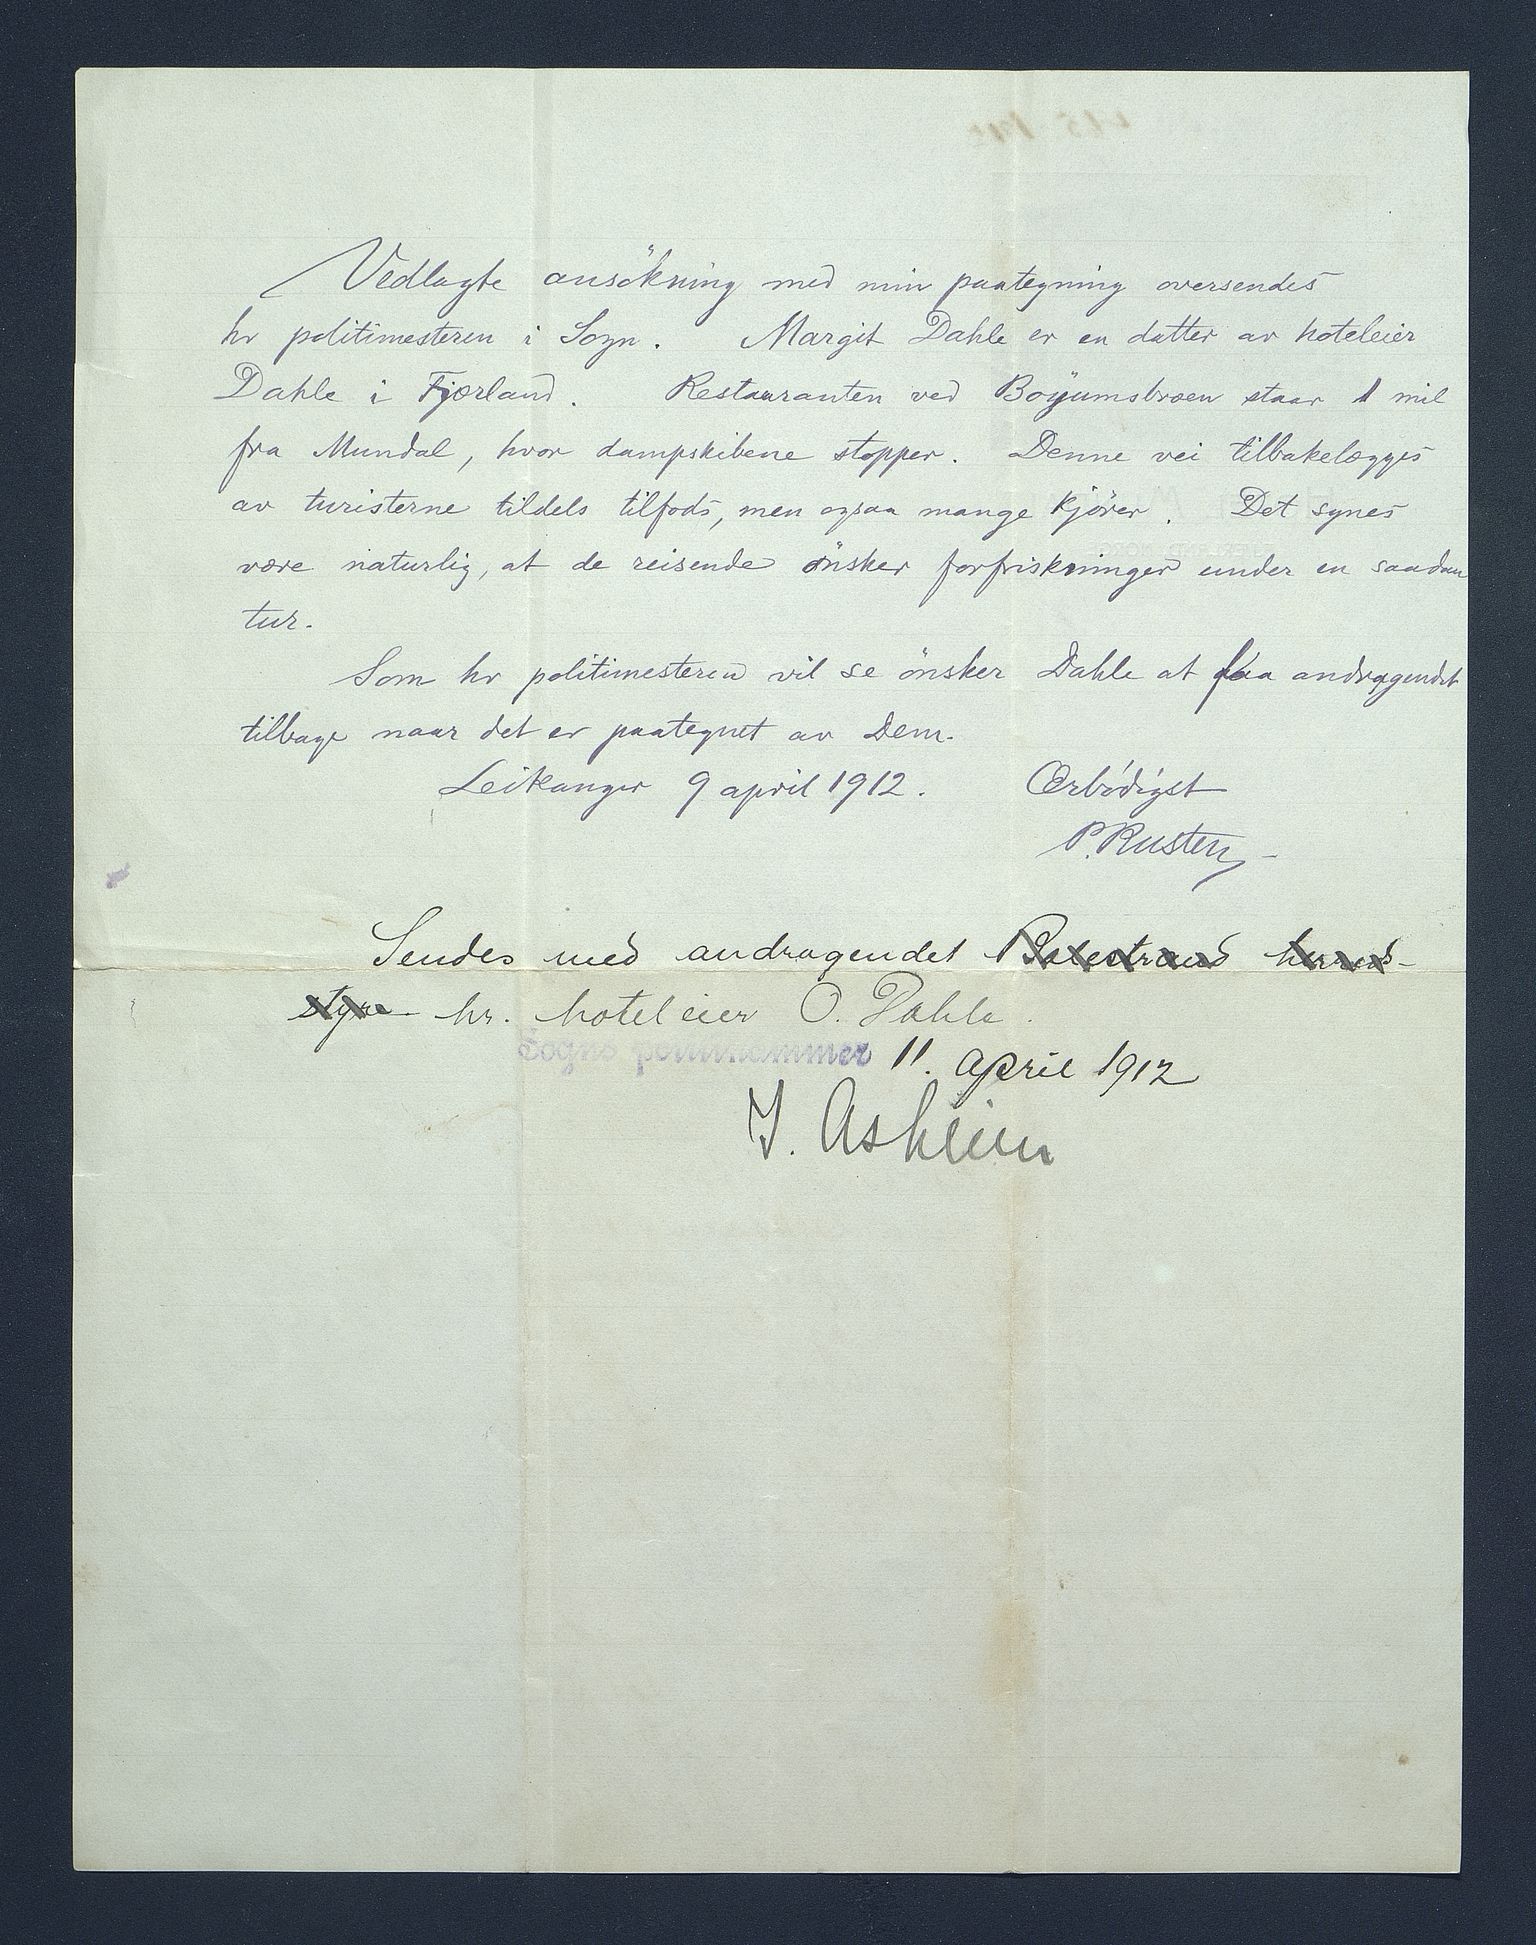 Vedlagte ansökning med min paategning oversendes
hr politimesteren i Sogn. Margit Dahle er en datter av hoteleier
Dahle i Fjærland. Restauranten ved Böyumsbræen staar 1 mil
fra Mundal, hvor dampskibene stopper. Denne vei tilbakelægges
av turisterne tildels tilfods, men ogsaa mange kjörer. Det synes
være naturlig, at de reisende önsker forfriskninger under en saadan
tur.
Som hr politimesteren vil se önsker Dahle at faa andragendet
tilbage naar det er paategnet av Dem.
Leikanger 9 april 1912. Ærbödigst
P. Rusten
Sendes med andragendet Balestrand herreds-
styre hr. hoteleier O. Dahle.
Sogns politikammer 11. april 1912
J. Asheim